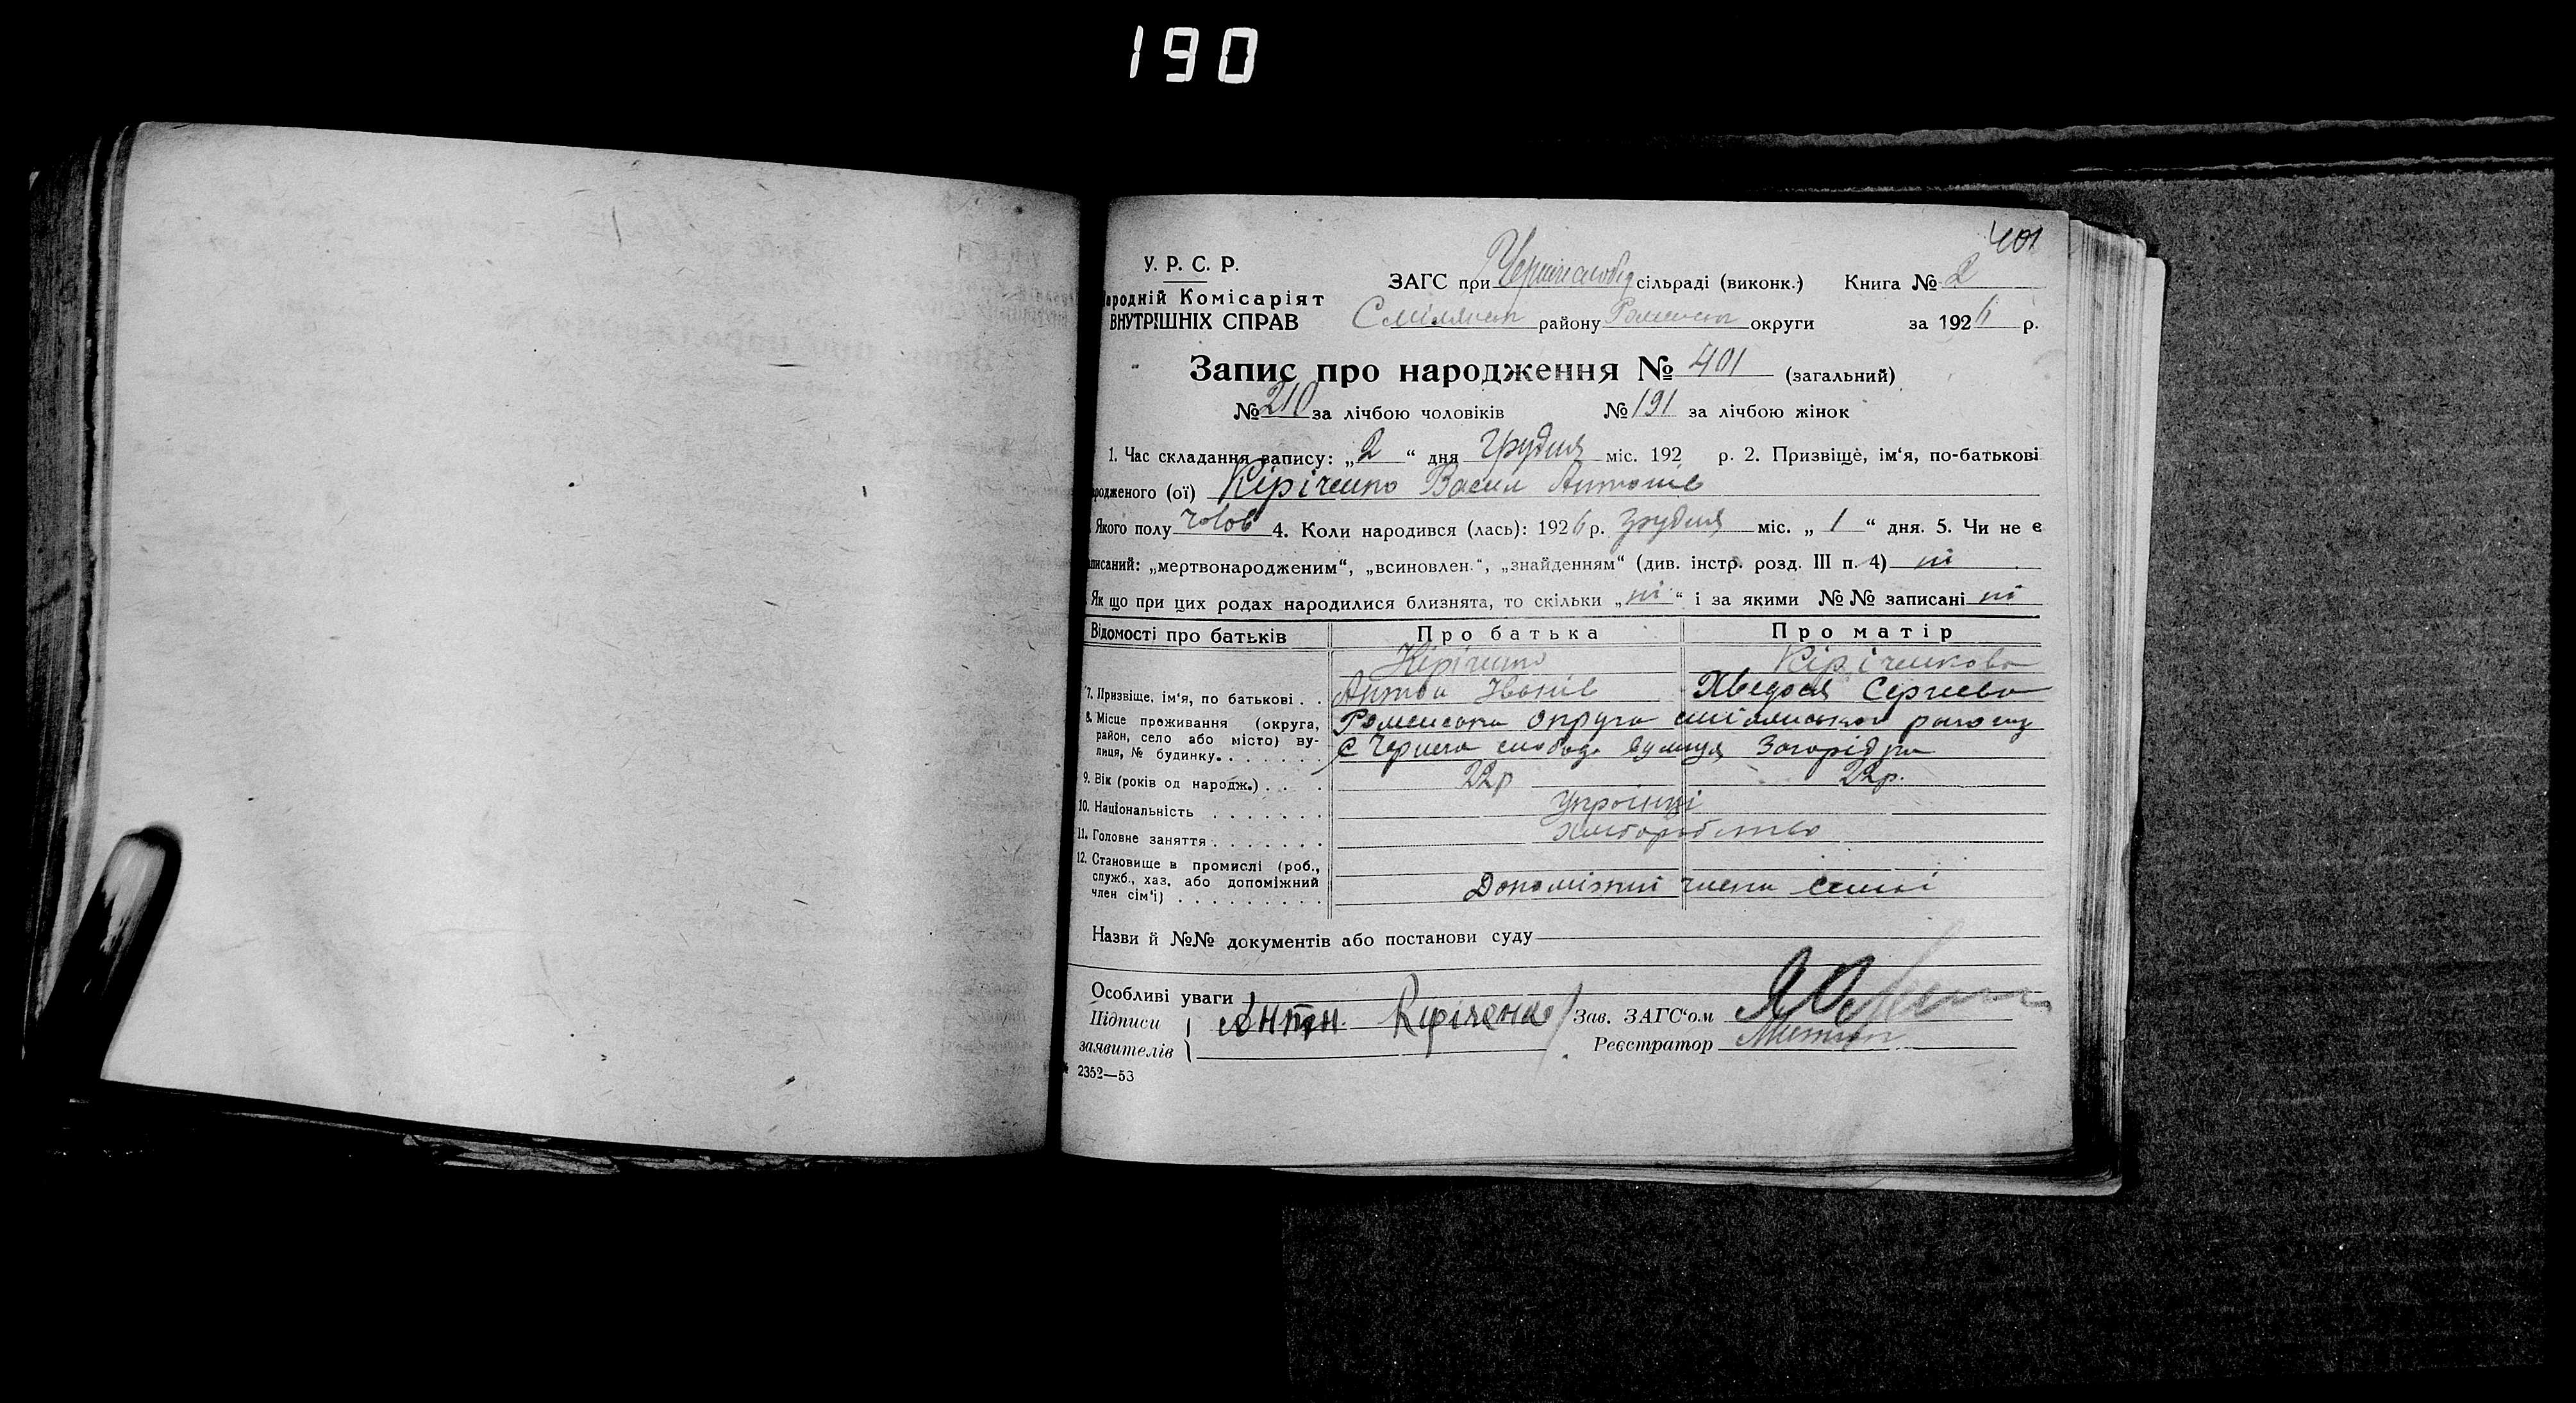 190
401
У. Р. С. Р.
ародній Комісаріят
ВНУТРІШНІХ СПРАВ
ЗАГС при сільраді (виконк.) Книга № 2
району округи за 1926 р.
Запис про народження № 401 (загальний)
№ 210 за лічбою чоловіків № 191 за лічбою жінок
1. Час складання запису: „2“ дня Грудня міс. 192 р. 2. Призвіще, ім‘я, по-батькові
родженого (ої) Кіріченко Васил Антонів
Якого полу Чолов 4. Коли народився (лась): 1926 р. грудня міс. „1“ дня. 5. Чи не є
писаний: „мертвонародженим“, „всиновлен.“, „знайденням“ (див. інстр. розд. III п. 4) ні
Як що при цих родах народилися близнята, то скільки „ні“ і за якими №№ записані ні
Відомості про батьків Про батька Про матір
Кіріченко Кіріченкова
7. Призвіще, ім‘я, по батькові . . Антон Іванів Хведося Сергієва
8. Місце проживання (округа, район, село або місто) вулиця, № будинку. Роменська округа смілянського району
с Чернеча слобода вулиця Загорідка
9. Вік (років од народж.) . . . 22р 22р.
10. Національність . . . . . . . Українці
11. Головне заняття . . . . . . . хліборобство
12. Становище в промислі (роб., служб., хаз. або допоміжний член сім‘ї) . . . . . . . . . Допоміжні члени семні
Назви й №№ документів або постанови суду
Особливі уваги
Підписи заявителів Антін. Кіріченко Зав. ЗАГС‘ом
Реєстратор
2352—53